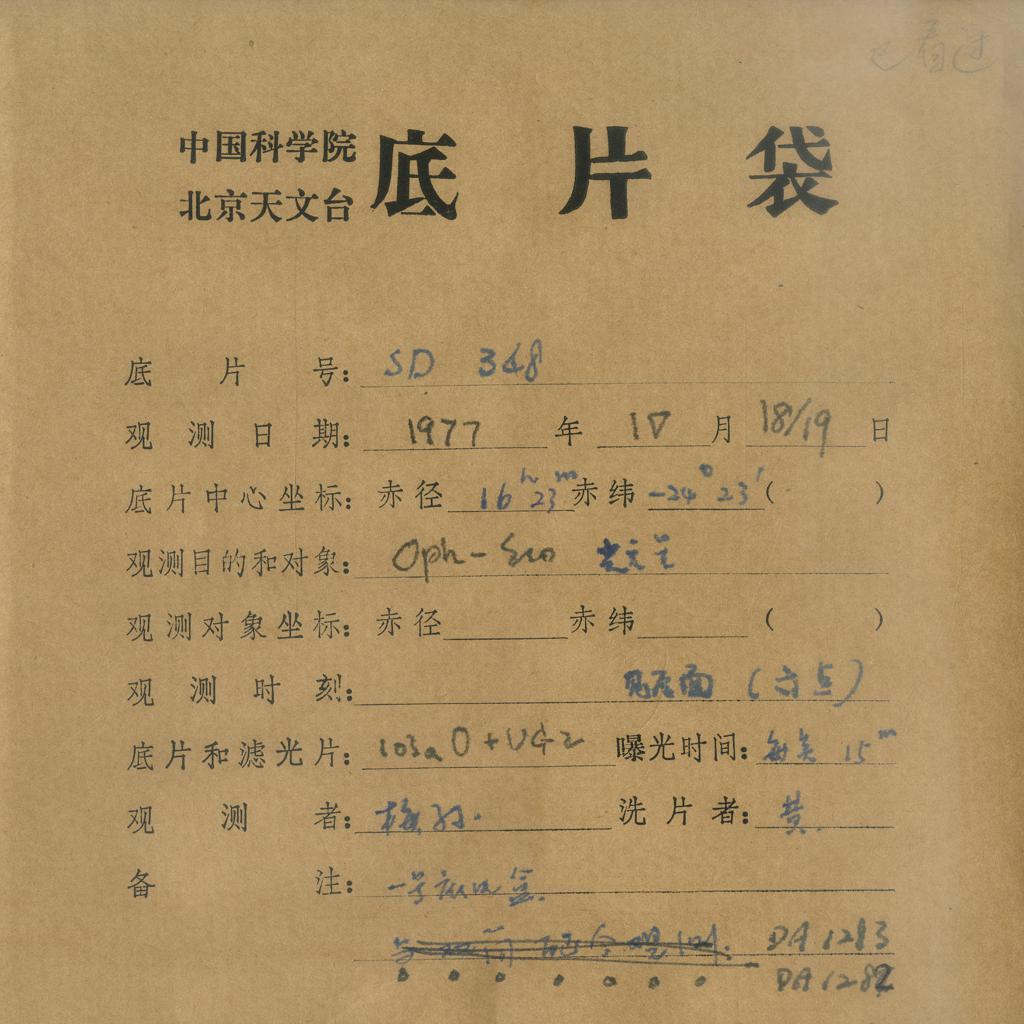 已看过
中国科学院
北京天文台
底片袋
底片号: SD 348
观测日期: 1977年 IV月 18/19日
底片中心坐标: 赤径 16h 23m 赤纬 -24° 23′ ( )
观测目的和对象: Oph-Sco
观测对象坐标: 赤径 赤纬 ( )
观测时刻: 面 (六点)
底片和滤光片: 103a O + UG2 曝光时间: 每 15m
观测者: 洗片者: 黄
备注: 一号 盒
DA 1283
DA 1282